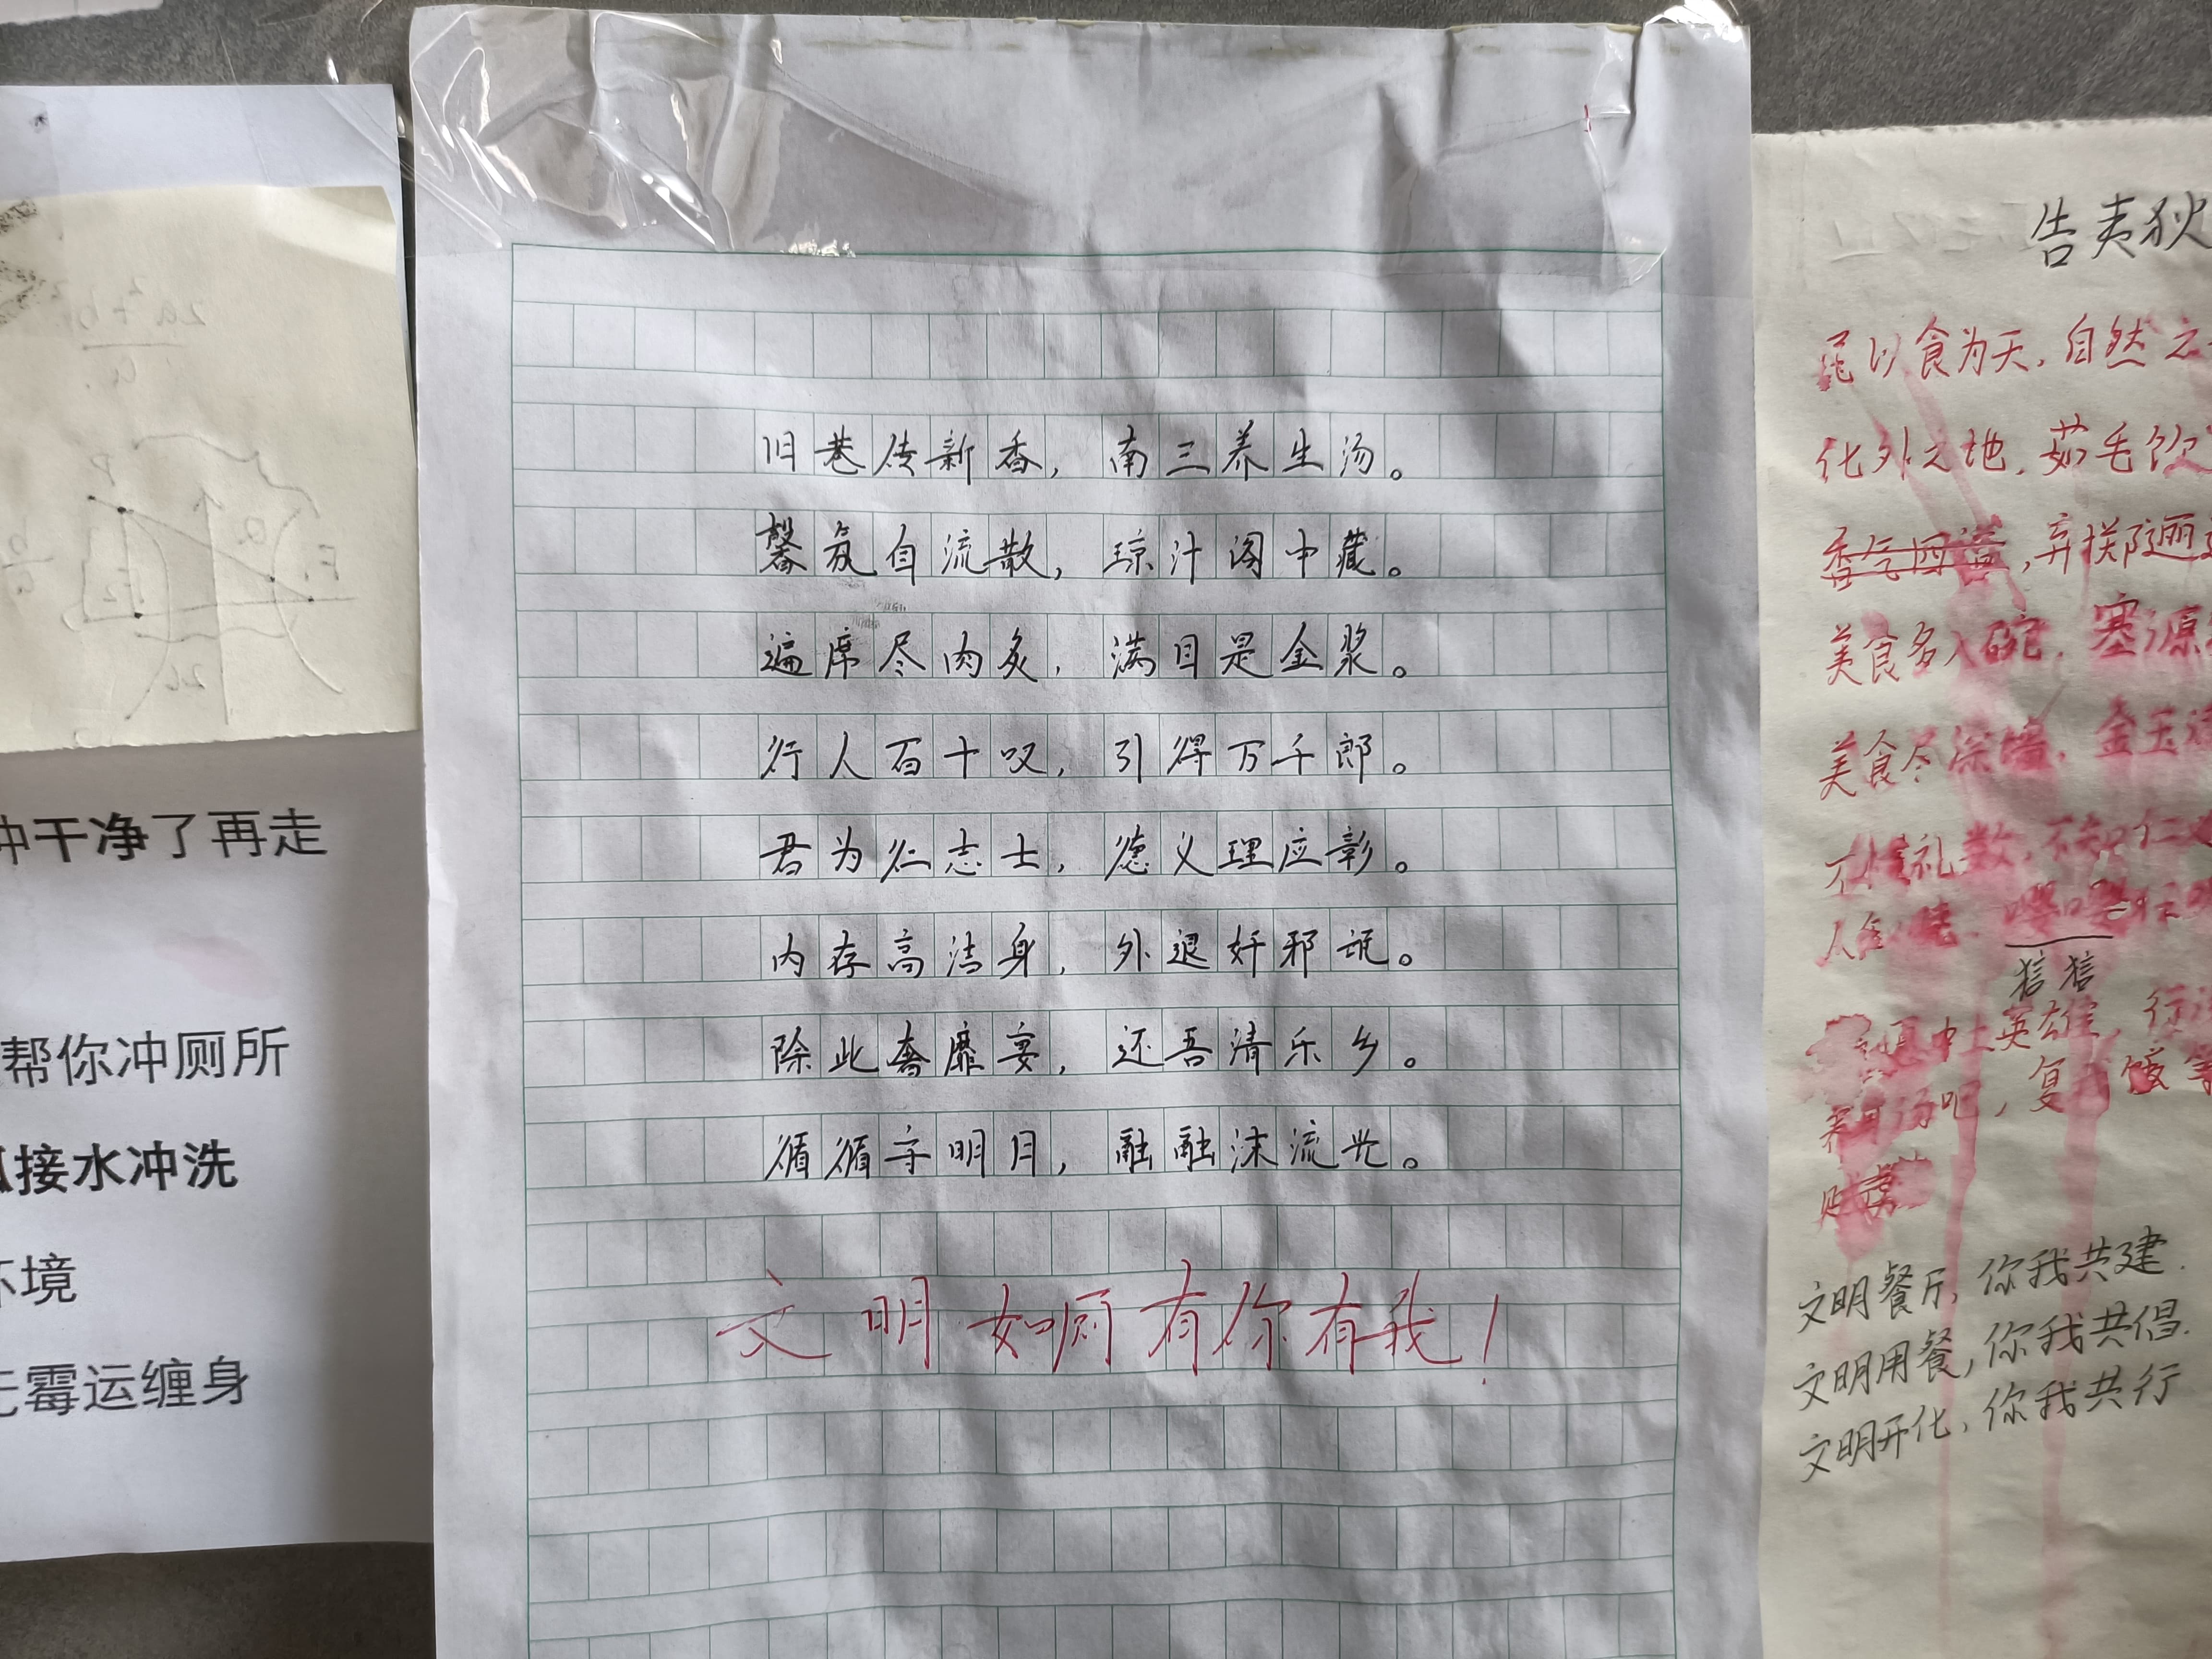 2a²+b²
a
P
F₁
冲干净了再走
帮你冲厕所
接水冲洗
环境
霉运缠身
旧巷传新香，南三养生汤。
馨氛自流散，琼汁阁中藏。
遍席尽肉炙，满目是金浆。
行人百十叹，引得万千郎。
君为仁志士，德义理应彰。
内存高洁身，外退奸邪诋。
除此奢靡宴，还吾清乐乡。
循循守明月，融融沫流光。
文明如厕有你有我！
告夷狄
民以食为天，自然之
化外之地，茹毛饮
香气四溢，弃掷逦迤
美食多入碗，塞源
美食尽涂墙，金玉
不懂礼数，不知仁
狺狺
中土英雄，行
养汤吧，复我馈
文明餐厅，你我共建.
文明用餐，你我共倡.
文明开化，你我共行